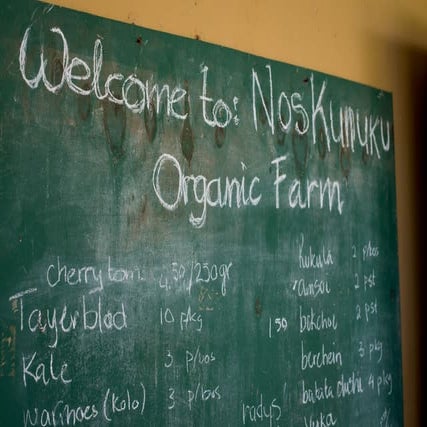 Welcome to: Nos Kunuku
Organic Farm
cherry tom 4,50/250gr
Tayerblad 10 p/kg
Kale 3 p/bos
warmoes (Kolo) 3 p/bos
radys
Kukula 2 p/bos
2 pst
150 bokchoi 2 pst
berehein 3 p/kg
batata dushi 4 p/kg
Yuka